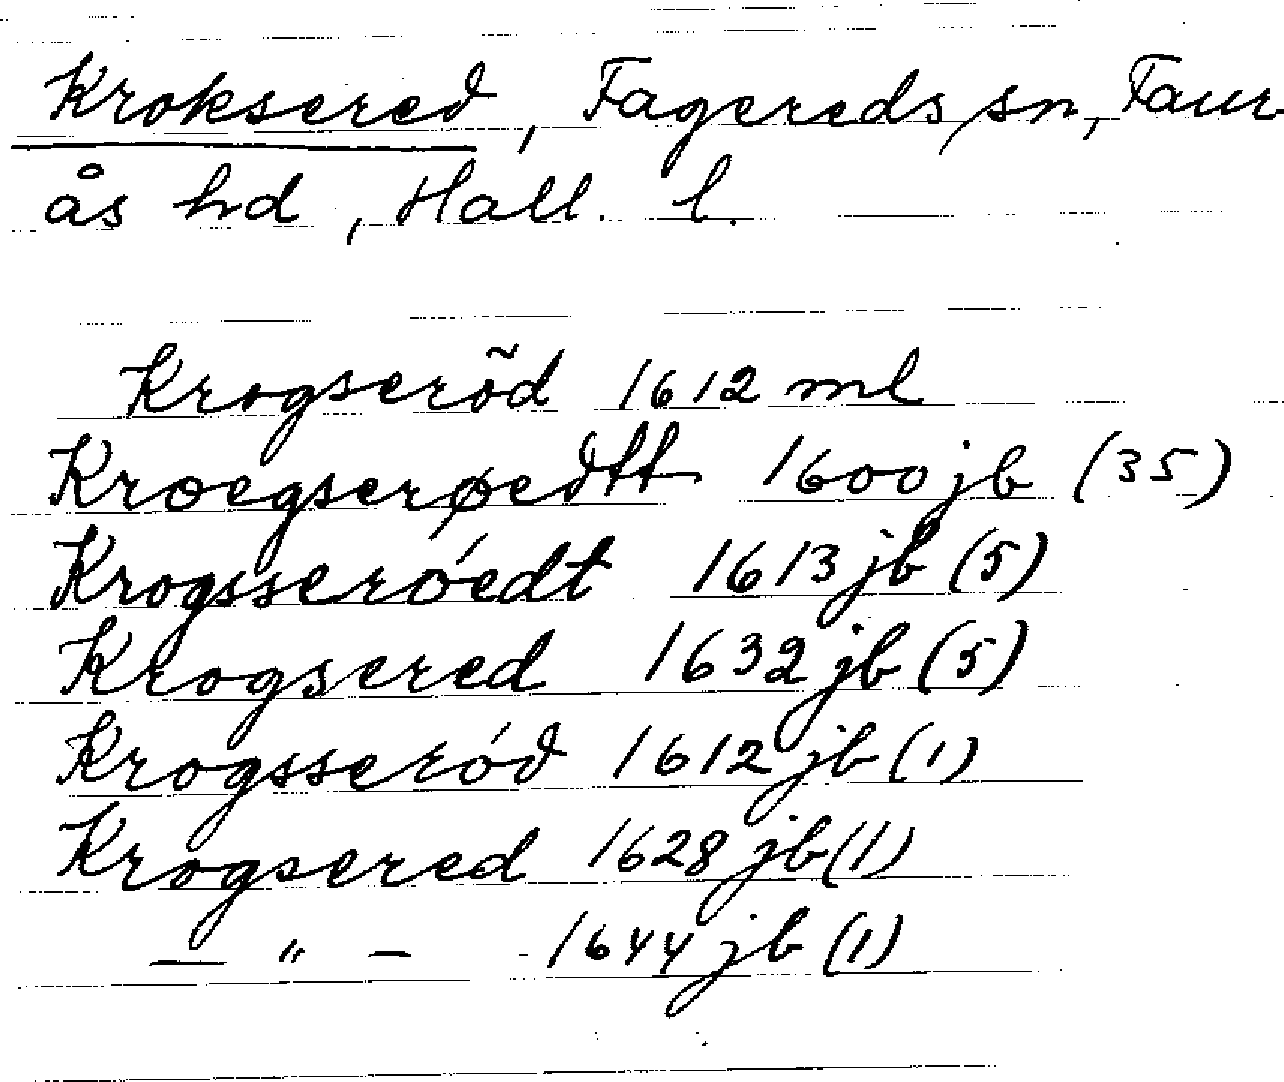 Kroksered, Fagereds sn, Faur
ås hd, Hall. l.
Krogserõd 1612 ml
Kroegserøedtt 1600 jb (35)
Krogsseróedt 1613 jb (5)
Krogsered 1632 jb (5)
Krogsseród 1612 jb (1)
Krogsered 1628 jb (1)
— " — - 1644 jb (1)